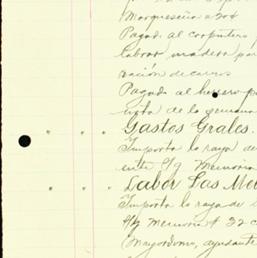 Marqueseña a 20¢
Pagado al carpintero p
labrar madera par
ración de carros
Pagado al herrero po
enta de la semana
Gastos Grales.
Importa la raya de
ente S/g Memoria
Labor Las Mo
Importa la raya de
S/g Memoria # 32 c
(Mayordomo, ayudante